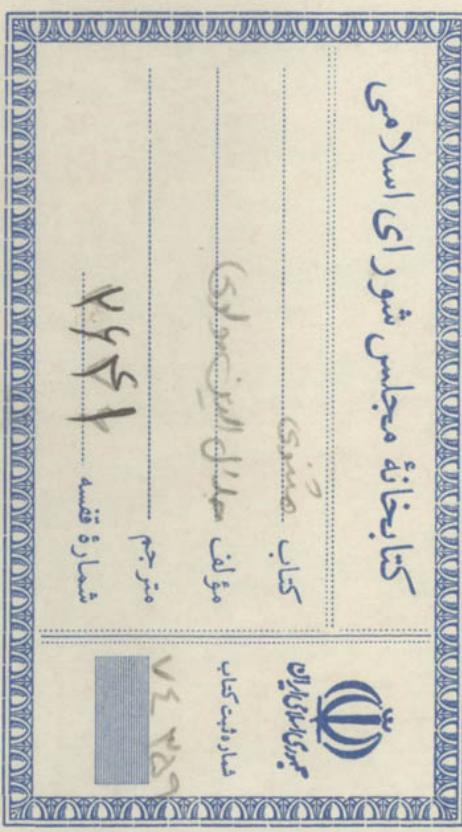 کتابخانهٔ مجلس شورای اسلامی
کتاب مثنوی
مؤلف جلال الدین مولوی
مترجم
شمارهٔ قفسه ۲۶۴۱
جمهوری اسلامی ایران
شماره ثبت کتاب
۷۴۳۵۹